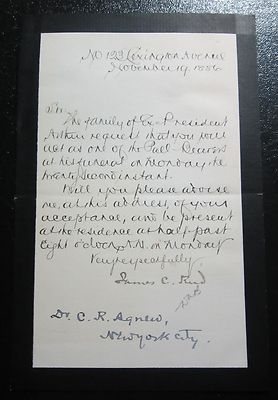 No 123 Lexington Avenue
November 19, 1886
Sir:
The family of Ex-President
Arthur request that you will
act as one of the Pall-Bearers
at his funeral on Monday the
twenty second instant.
Will you please advise
me, at this address, of your
acceptance, and be present
at the residence at half-past
Eight o'clock, A.M. on Monday
Very respectfully
James C. Reed
Dr. C. R. Agnew,
New York City.